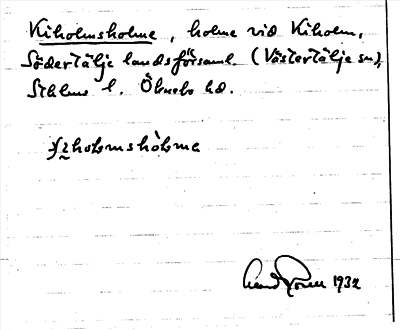 Kiholmsholme, holme vid Kiholm,
Södertälje landsförsaml. (Västertälje sn),
Sthlms l. Öknebo hd.
1932